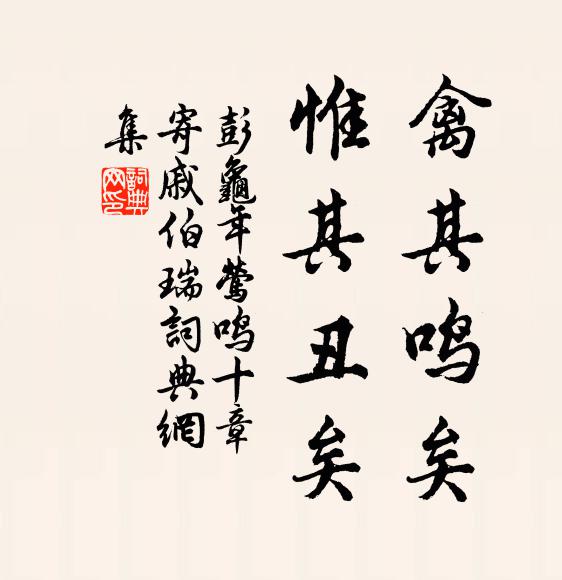 禽其鸣矣
惟其丑矣
彭龜年鶯鸣十章
寄戚伯瑞詞典網
集
詞典
网印